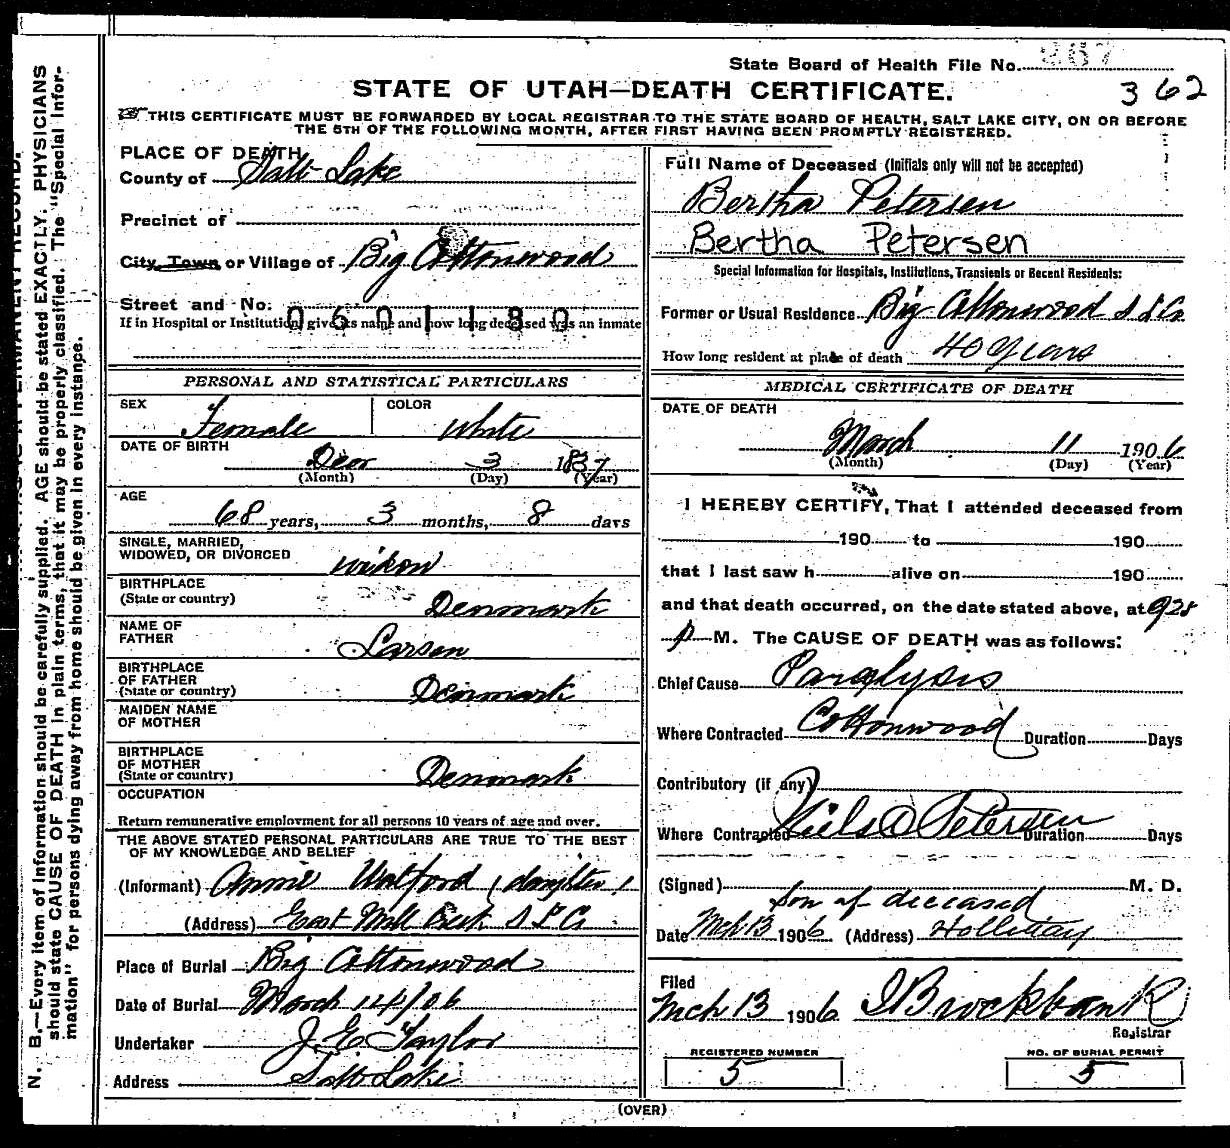 State Board of Health File No. 267
STATE OF UTAH—DEATH CERTIFICATE.
362
THIS CERTIFICATE MUST BE FORWARDED BY LOCAL REGISTRAR TO THE STATE BOARD OF HEALTH, SALT LAKE CITY, ON OR BEFORE
THE 5TH OF THE FOLLOWING MONTH, AFTER FIRST HAVING BEEN PROMPTLY REGISTERED.
PLACE OF DEATH
County of Salt Lake
Precinct of
City, Town or Village of Big Cottonwood
Street and No.
0601180
If in Hospital or Institution give its name and how long deceased was an inmate
PERSONAL AND STATISTICAL PARTICULARS
SEX Female COLOR White
DATE OF BIRTH
Decr 3 1837
(Month) (Day) (Year)
AGE
68 years, 3 months, 8 days
SINGLE, MARRIED,
WIDOWED, OR DIVORCED
BIRTHPLACE
(State or country) Denmark
NAME OF
FATHER Larsen
BIRTHPLACE
OF FATHER
(State or country) Denmark
MAIDEN NAME
OF MOTHER
BIRTHPLACE
OF MOTHER
(State or country) Denmark
OCCUPATION
Return remunerative employment for all persons 10 years of age and over.
THE ABOVE STATED PERSONAL PARTICULARS ARE TRUE TO THE BEST
OF MY KNOWLEDGE AND BELIEF
(Informant) Annie Walford (daughter)
(Address) East Mill Creek S L Co
Place of Burial Big Cottonwood
Date of Burial March 14/06
Undertaker J E Taylor
Address Salt Lake
Full Name of Deceased (Initials only will not be accepted)
Bertha Petersen
Bertha Petersen
Special Information for Hospitals, Institutions, Transients or Recent Residents:
Former or Usual Residence Big Cottonwood S L Co
How long resident at place of death 40 Years
MEDICAL CERTIFICATE OF DEATH
DATE OF DEATH
March 11 1906
(Month) (Day) (Year)
I HEREBY CERTIFY, That I attended deceased from
190 to 190
that I last saw h alive on 190
and that death occurred, on the date stated above, at 928
p M. The CAUSE OF DEATH was as follows:
Chief Cause Paralysis
Where Contracted Cottonwood Duration Days
Contributory (if any)
Where Contracted Niels Petersen Duration Days
(Signed) M. D.
Son of deceased
Date Mch 13 1906 (Address) Holliday
Filed
Mch 13 1906 Brockbank
Registrar
REGISTERED NUMBER
5
NO. OF BURIAL PERMIT
5
(OVER)
N. B.—Every item of information should be carefully supplied. AGE should be stated EXACTLY. PHYSICIANS
should state CAUSE OF DEATH in plain terms, that it may be properly classified. The "Special Infor-
mation" for persons dying away from home should be given in every instance.